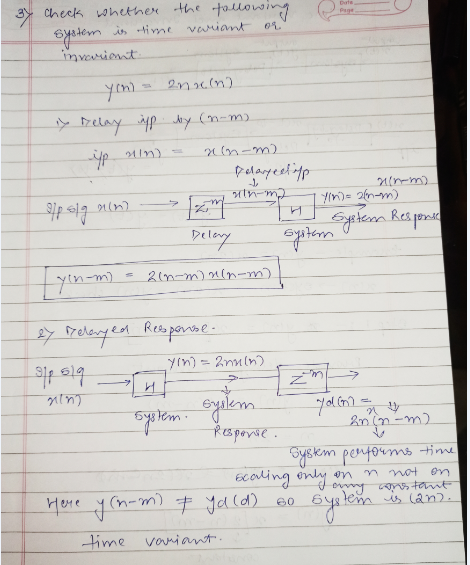 Date
Page
3) Check whether the following
system is time variant or
invariant.
y(n) = 2nx(n)
1) Delay i/p by (n-m)
i/p x(n) = x(n-m)
Delayed i/p
↓
I/p sig x(n) → Z^-m x(n-m) → H y(n) = 2(n-m) x(n-m)
Delay System System Response
y(n-m) = 2(n-m) x(n-m)
2) Delayed Response.
I/p sig x(n) → H y(n) = 2nx(n) → Z^-m →
System. System Response. yd(n) =
2n x(n-m)
↓
System performs time
scaling only on n not on
any constant
Here y(n-m) ≠ yd(d) so system is (2n).
time variant.